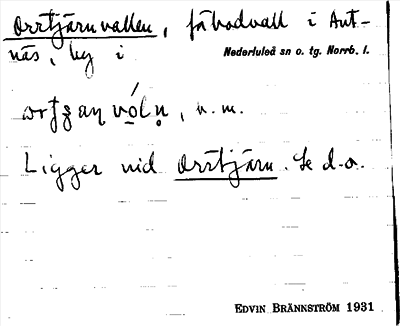 Orrtjärnvallen, fäbodvall i Ant-
näs, by i Nederluleå sn o. tg. Norrb. l.
, n. m.
Ligger vid Orrtjärn. Se d. o.
EDVIN BRÄNNSTRÖM 1931